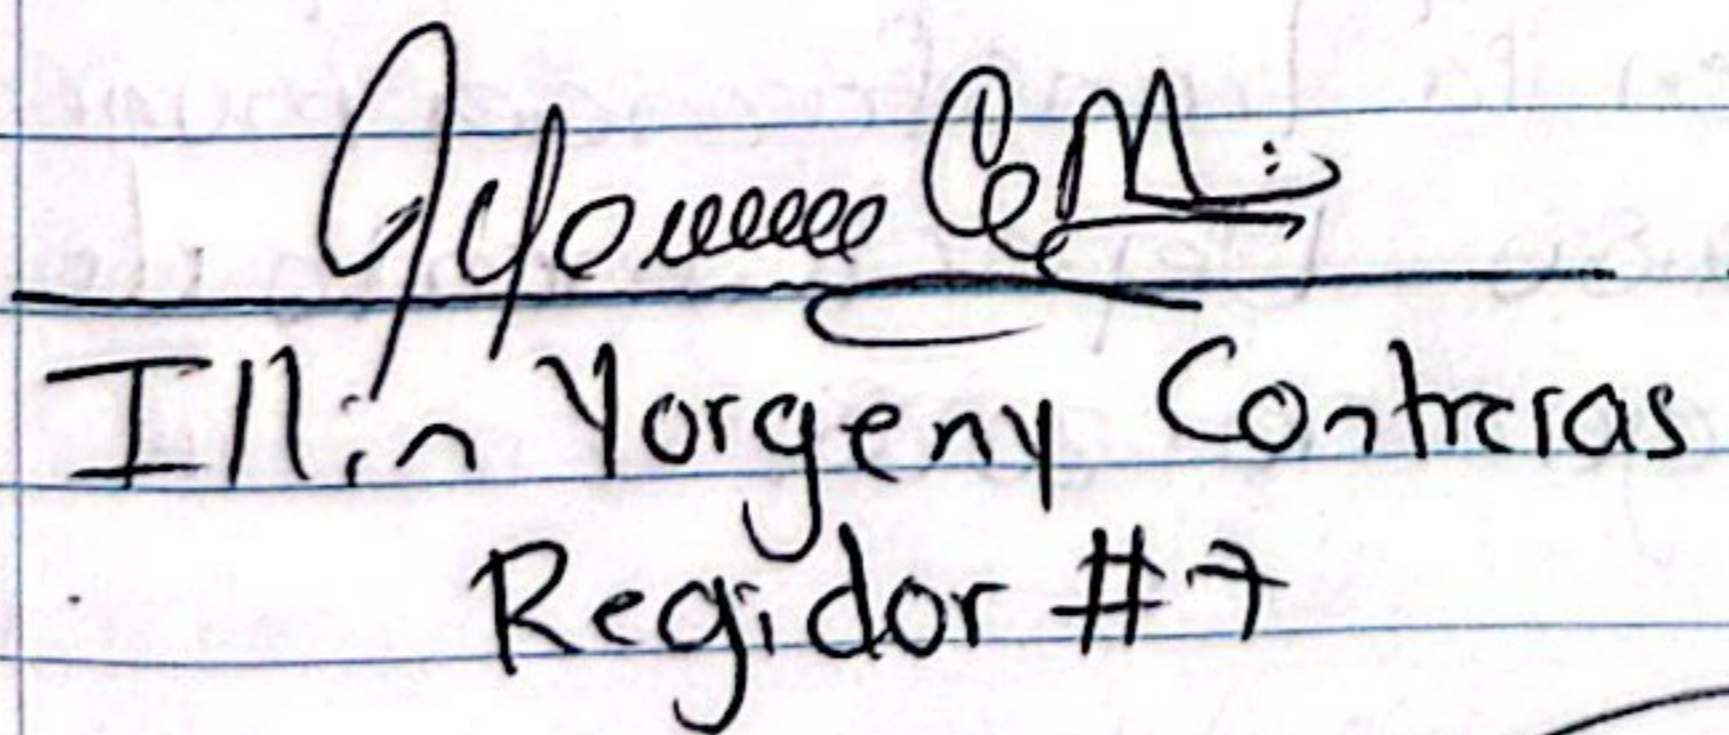 Illin Yorgeny Contreras
Regidor #7